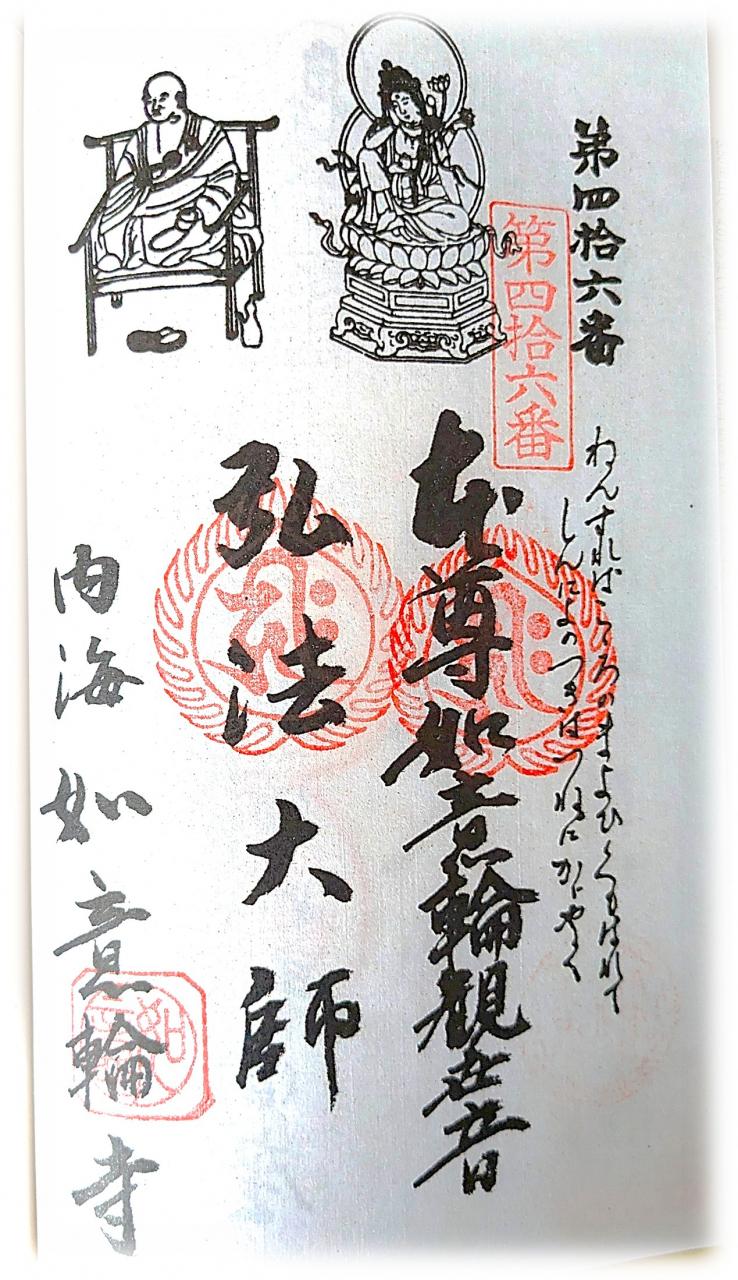 第四拾六番
ねんずればこゝろのまよひくもはれて
しんによのつきはつねにかゞやく
第四拾六番
本尊如意輪観世音
弘法大師
内海如意輪寺